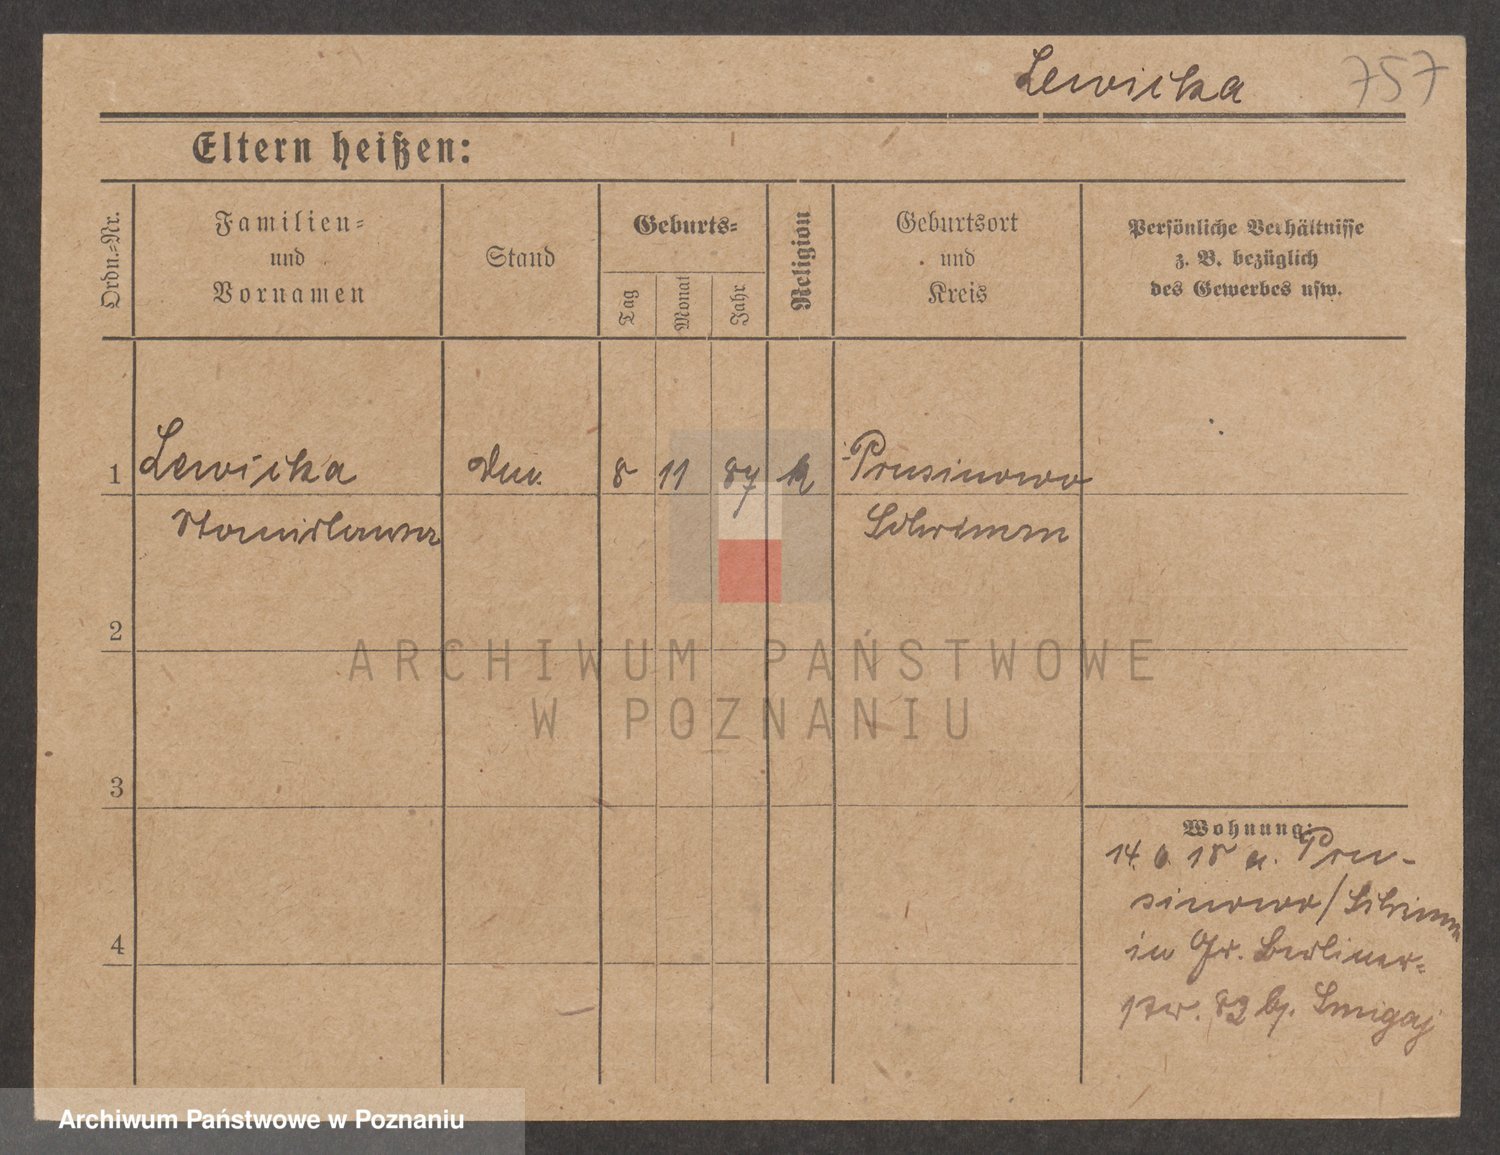 Lewicka 757
Eltern heißen:
Ordn.-Nr.
Familien-
und
Vornamen
Stand
Geburts-
Tag
Monat
Jahr
Religion
Geburtsort
und
Kreis
Persönliche Verhältnisse
z. B. bezüglich
des Gewerbes usw.
1 Lewicka 8 11 87 k Prusinowo
Stanislawa Schrimm
2
3
4
Wohnung:
14. 6. 18 a. Pru-
sinowo/Schrimm
in Gr. Berliner-
str. 82 bj. Smigaj
ARCHIWUM PAŃSTWOWE
W POZNANIU
Archiwum Państwowe w Poznaniu